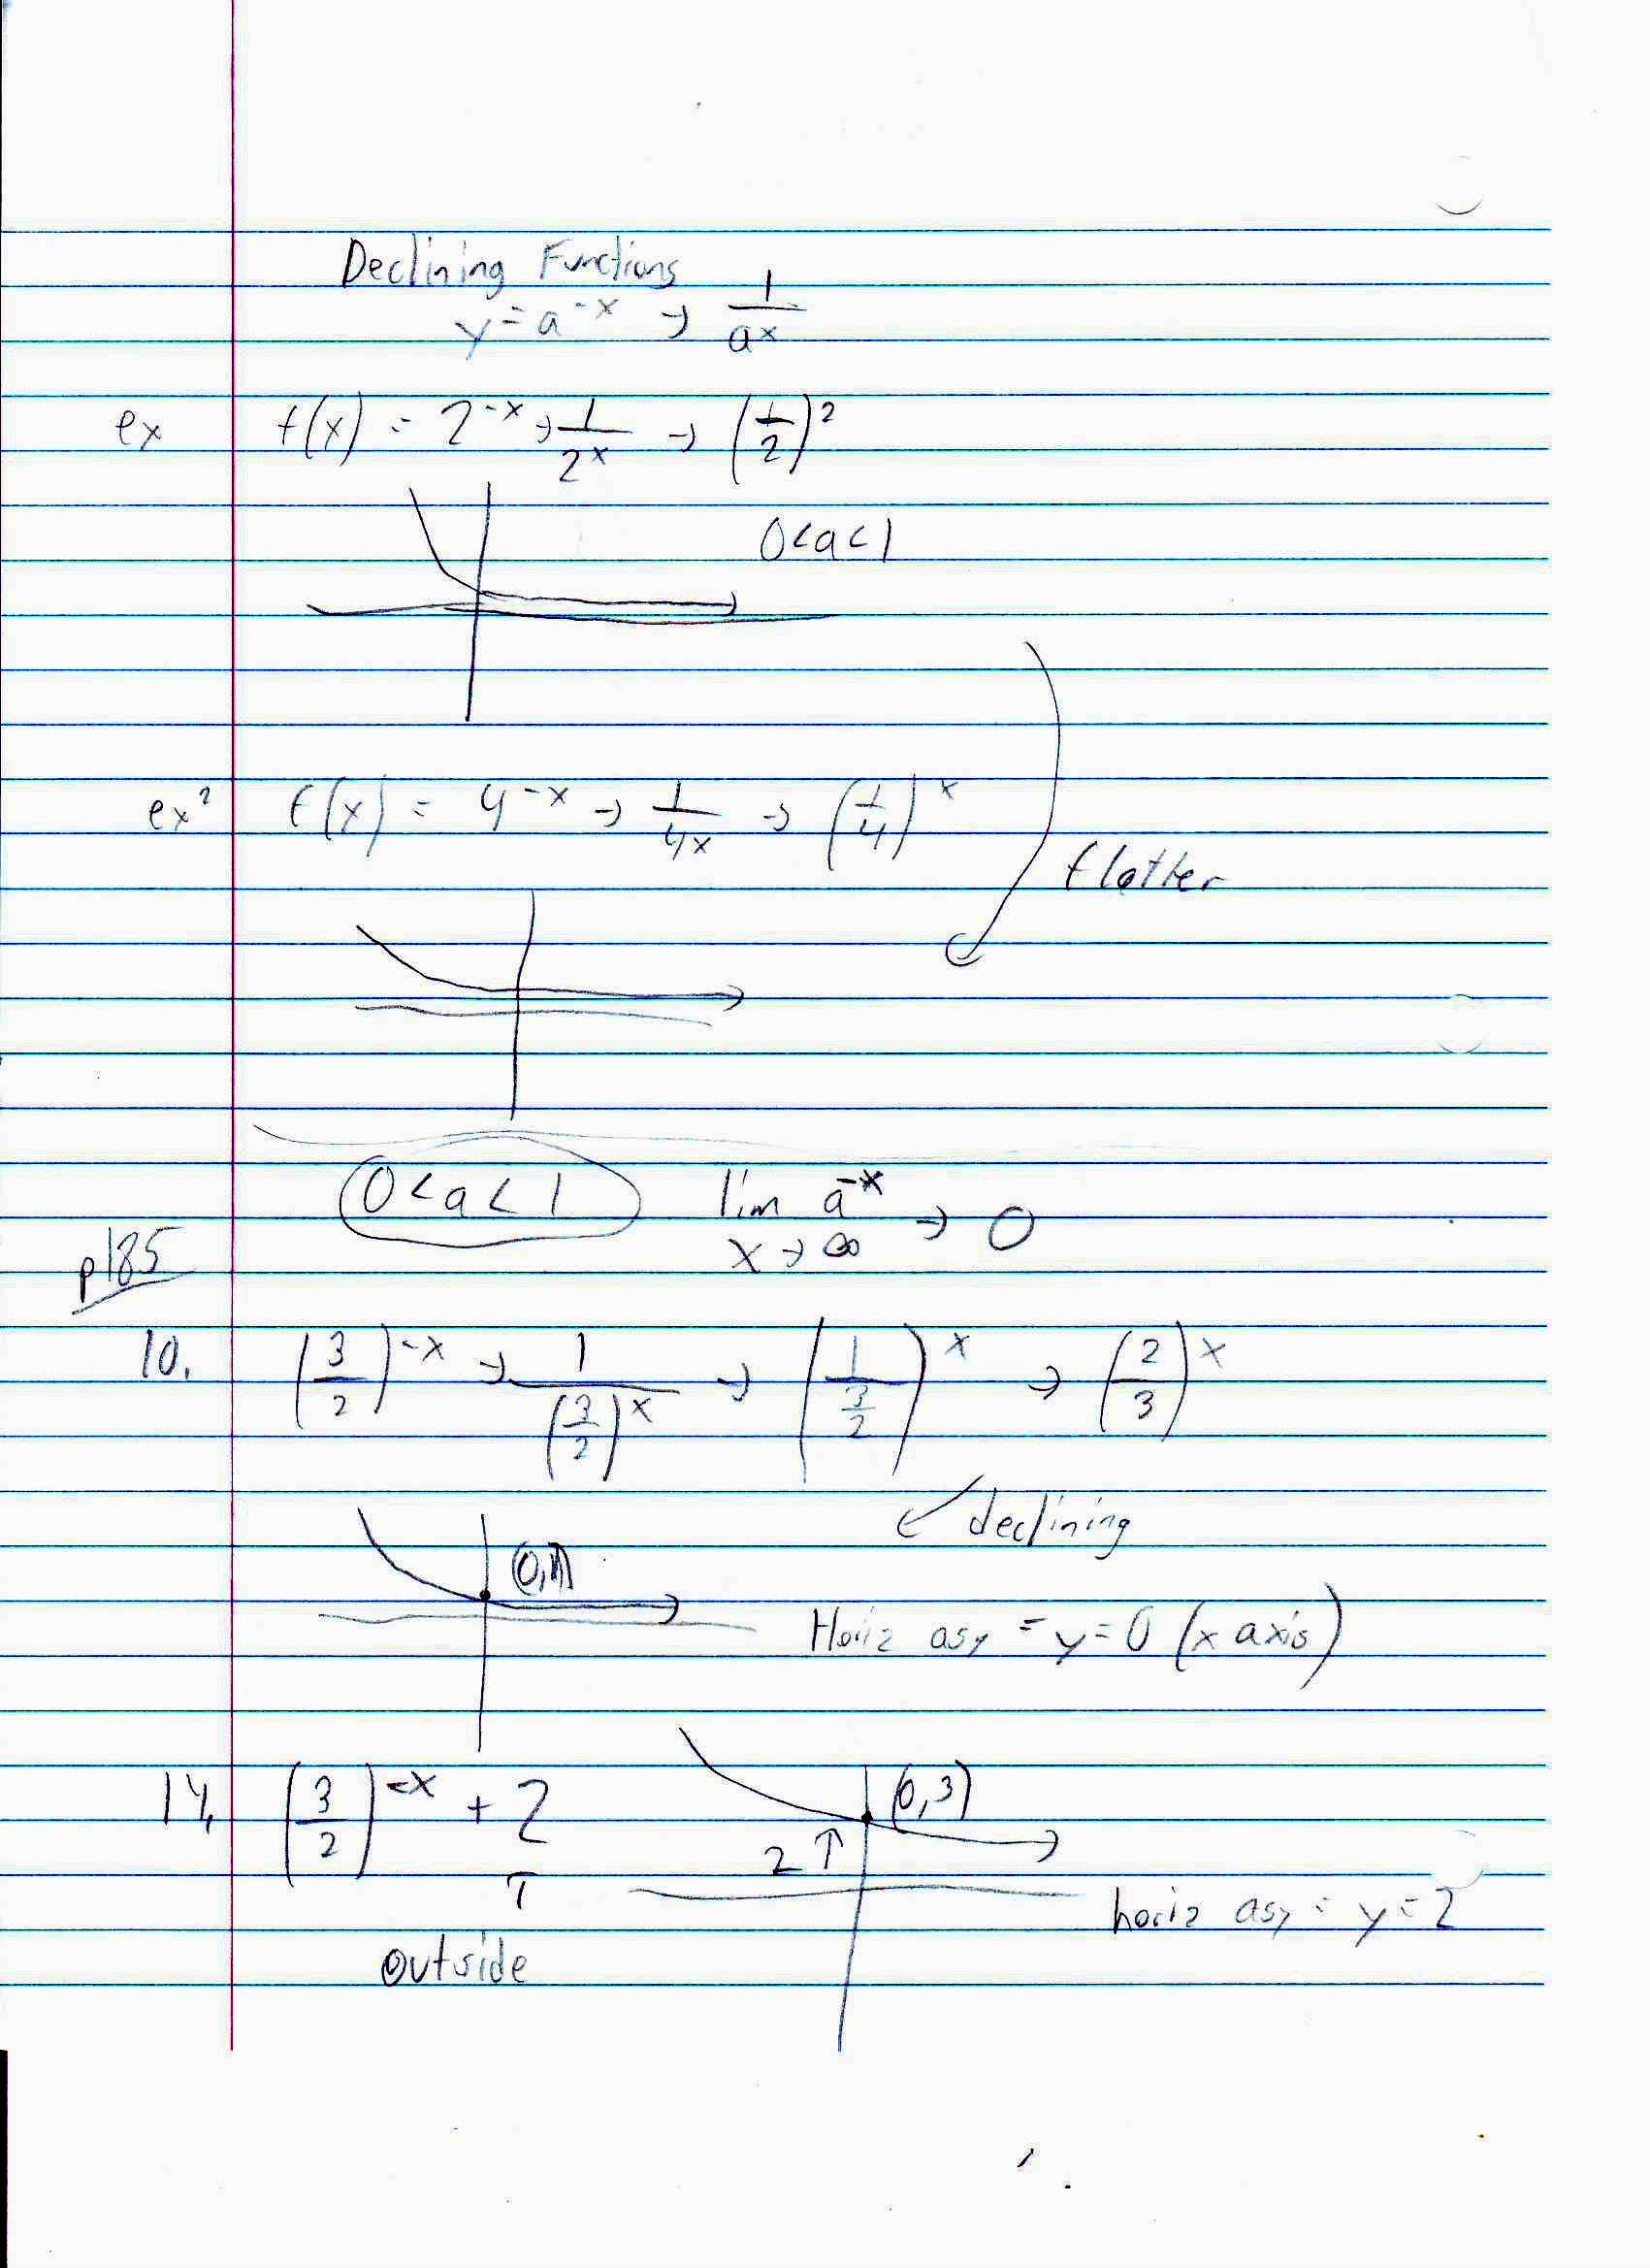 Declining Functions
y = a^-x → 1/a^x
ex f(x) = 2^-x → 1/2^x → (1/2)^2
0<a<1
ex² f(x) = 4^-x → 1/4x → (1/4)^x
flatter
0<a<1 lim x→∞ a^-x → 0
p185
10. (3/2)^-x → 1/(3/2)^x → (1/(3/2))^x → (2/3)^x
declining
(0,1)
Horiz asy = y=0 (x axis)
14. (3/2)^-x + 2 (0,3)
2↑
↑
horiz asy = y=2
outside